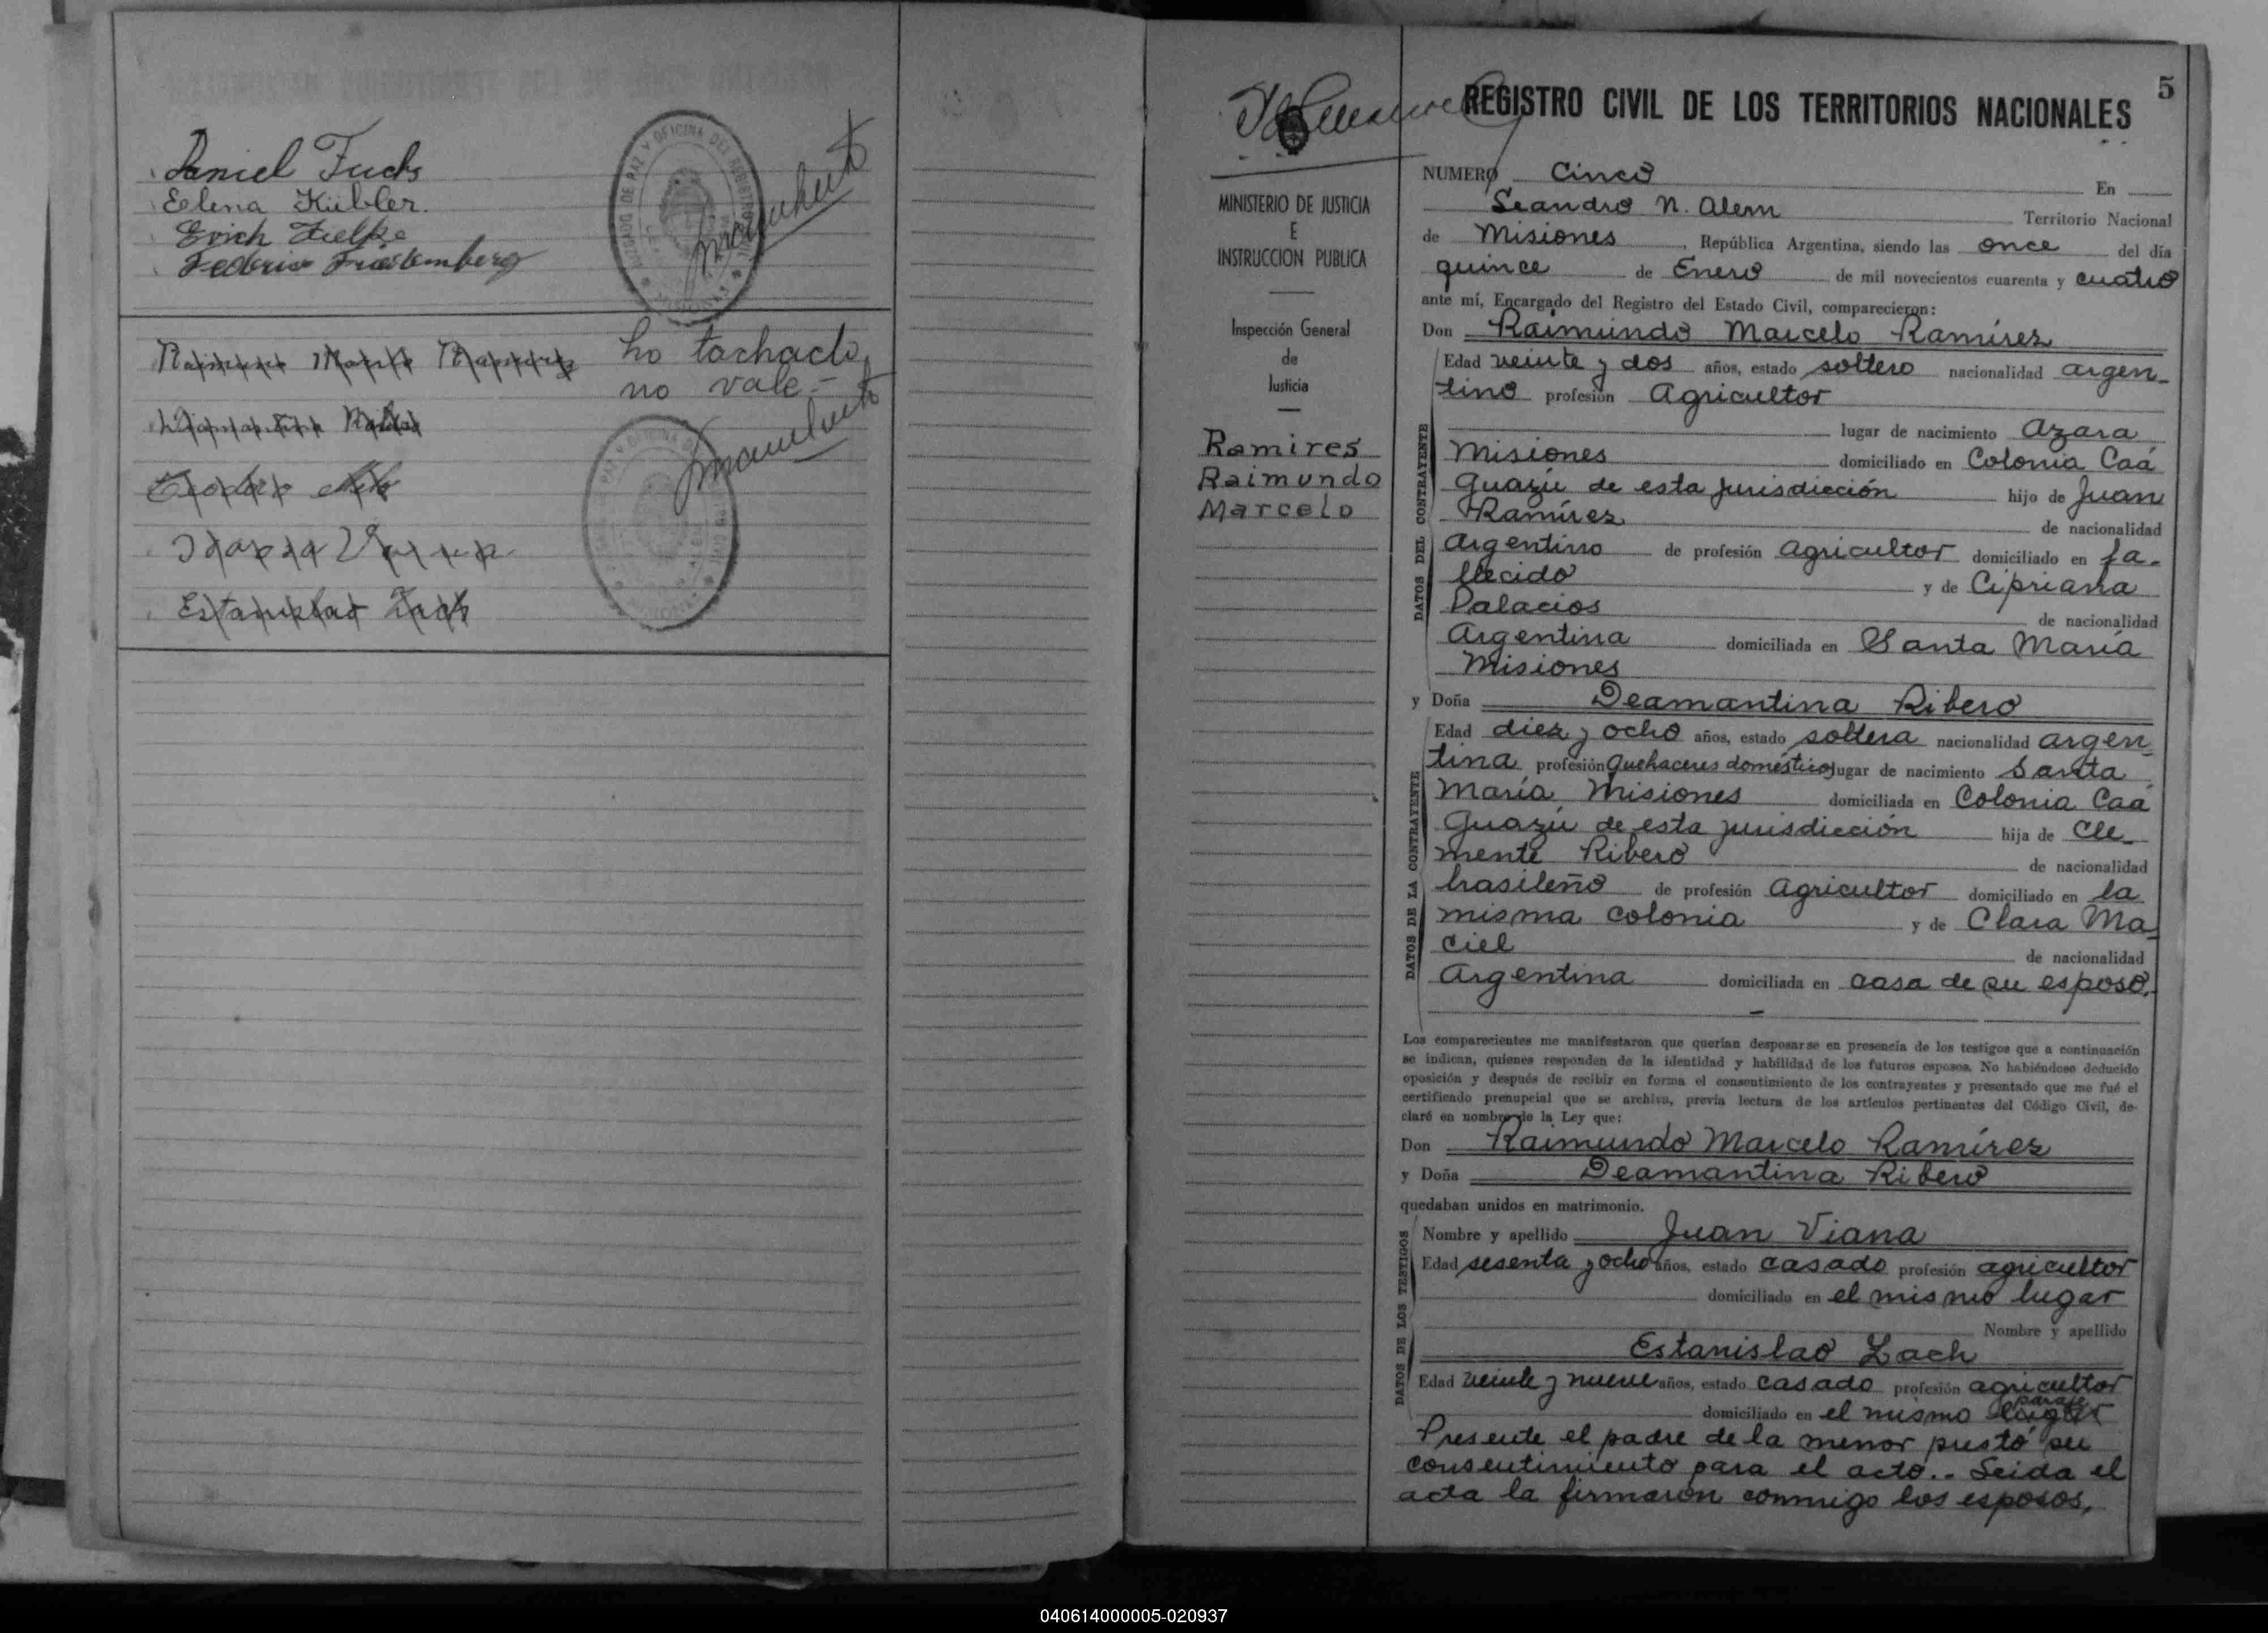 Daniel Fuchs
Elena Kübler.
Erich Zielke
Federico
JUZGADO DE PAZ Y OFICINA DEL REGISTRO CIVIL
MISIONES
Raimundo Marcelo Ramirez
ho tachado,
no vale.-
Estanislao Zach
5
REGISTRO CIVIL DE LOS TERRITORIOS NACIONALES
MINISTERIO DE JUSTICIA
E
INSTRUCCION PUBLICA
Inspección General
de
Justicia
Ramires
Raimundo
Marcelo
NUMERO Cinco En
Leandro N. Alem Territorio Nacional
de Misiones, República Argentina, siendo las once del día
quince de Enero de mil novecientos cuarenta y cuatro
ante mí, Encargado del Registro del Estado Civil, comparecieron:
Don Raimundo Marcelo Ramírez
DATOS DEL CONTRAYENTE
Edad veinte y dos años, estado soltero nacionalidad argen-
tino profesión Agricultor
lugar de nacimiento Azara
Misiones domiciliado en Colonia Caá
Guazú de esta jurisdicción hijo de Juan
Ramírez de nacionalidad
Argentino de profesión agricultor domiciliado en fa-
llecido y de Cipriana
Palacios de nacionalidad
Argentina domiciliada en Santa María
Misiones
y Doña Deamantina Ribero
DATOS DE LA CONTRAYENTE
Edad diez y ocho años, estado soltera nacionalidad argen-
tina profesión Quehaceres domésticos lugar de nacimiento Santa
María, Misiones domiciliada en Colonia Caá
Guazú de esta jurisdicción hija de Cle-
mente Ribero de nacionalidad
brasileño de profesión Agricultor domiciliado en la
misma colonia y de Clara Ma-
ciel de nacionalidad
Argentina domiciliada en casa de su esposo.
Los comparecientes me manifestaron que querían desposarse en presencia de los testigos que a continuación
se indican, quienes responden de la identidad y habilidad de los futuros esposos. No habiéndose deducido
oposición y después de recibir en forma el consentimiento de los contrayentes y presentado que me fué el
certificado prenupcial que se archiva, previa lectura de los artículos pertinentes del Código Civil, de-
claré en nombre de la Ley que:
Don Raimundo Marcelo Ramírez
y Doña Deamantina Ribero
quedaban unidos en matrimonio.
DATOS DE LOS TESTIGOS
Nombre y apellido Juan Viana
Edad sesenta y ocho años, estado casado profesión agricultor
domiciliado en el mismo lugar
Nombre y apellido
Estanislao Zach
Edad veinte y nueve años, estado casado profesión agricultor
paraje
domiciliado en el mismo lugar
Presente el padre de la menor prestó su
consentimiento para el acto.- Leida el
acta la firmaron conmigo los esposos,
040614000005-020937